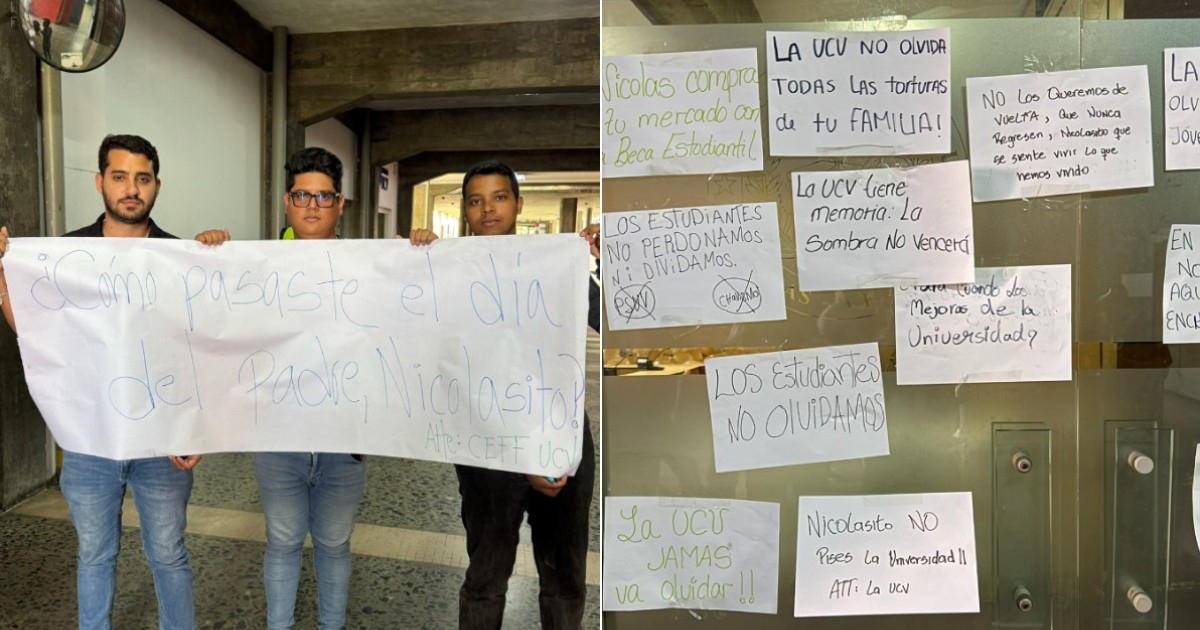 ¿Cómo pasaste el día
del Padre, Nicolasito?
Atte: CEFF UCV
Nicolas compra
tu mercado con
Beca Estudiantil
LA UCV NO OLVIDA
TODAS LAS torturas
de tu FAMILIA!
NO LOS Queremos de
VUELTA, Que NUNCA
Regresen, Nicolasito que
se siente vivir Lo que
hemos vivido
LA
OLV
JÓVE
LOS ESTUDIANTES
NO PERDONAMOS
NI DIVIDAMOS.
PSUV
La UCV tiene
memoria: La
Sombra NO Vencerá
cuando las
Mejoras de la
Universidad?
EN
NO
AQU
ENCH
LOS EStudiantes
NO OLVIDAMOS
La UCV
JAMAS
va olvidar!!
Nicolasito NO
Pises La Universidad!!
ATT: La UCV